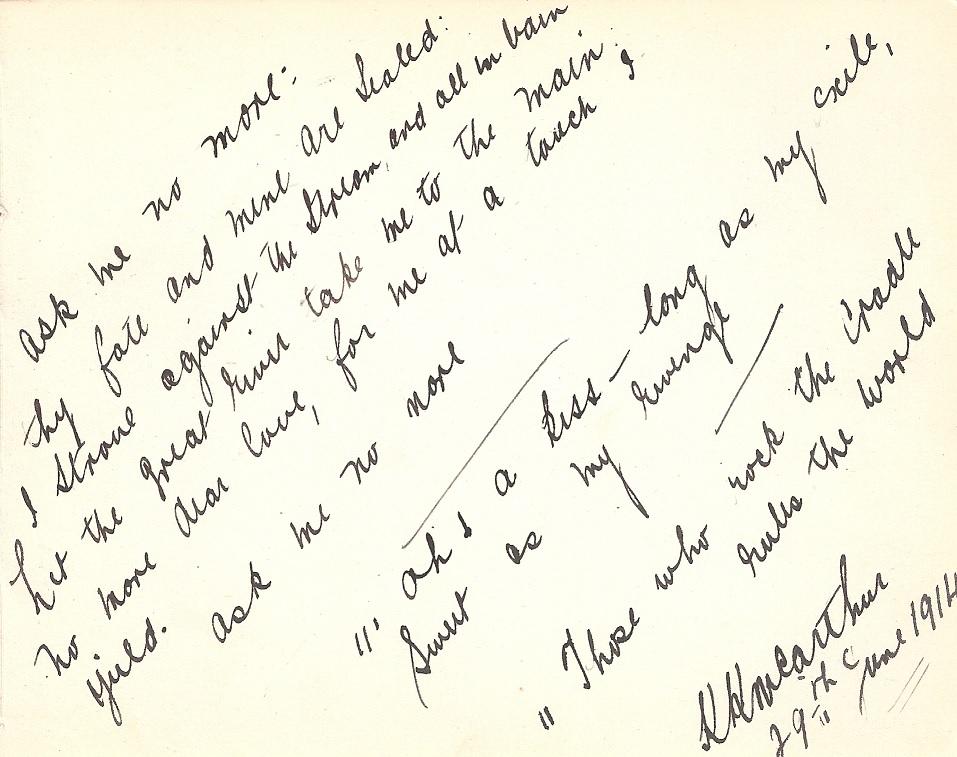 ask me no more:
thy fate and mine are sealed:
I strove against the stream and all in vain
Let the great river take me to the main;
No more dear love, for me at a touch I
yield. ask me no more
"' Oh! a kiss – long as my exile,
Sweet as my revenge
"Those who rock the cradle
rules the world
KKMcArthur
29th June 1914